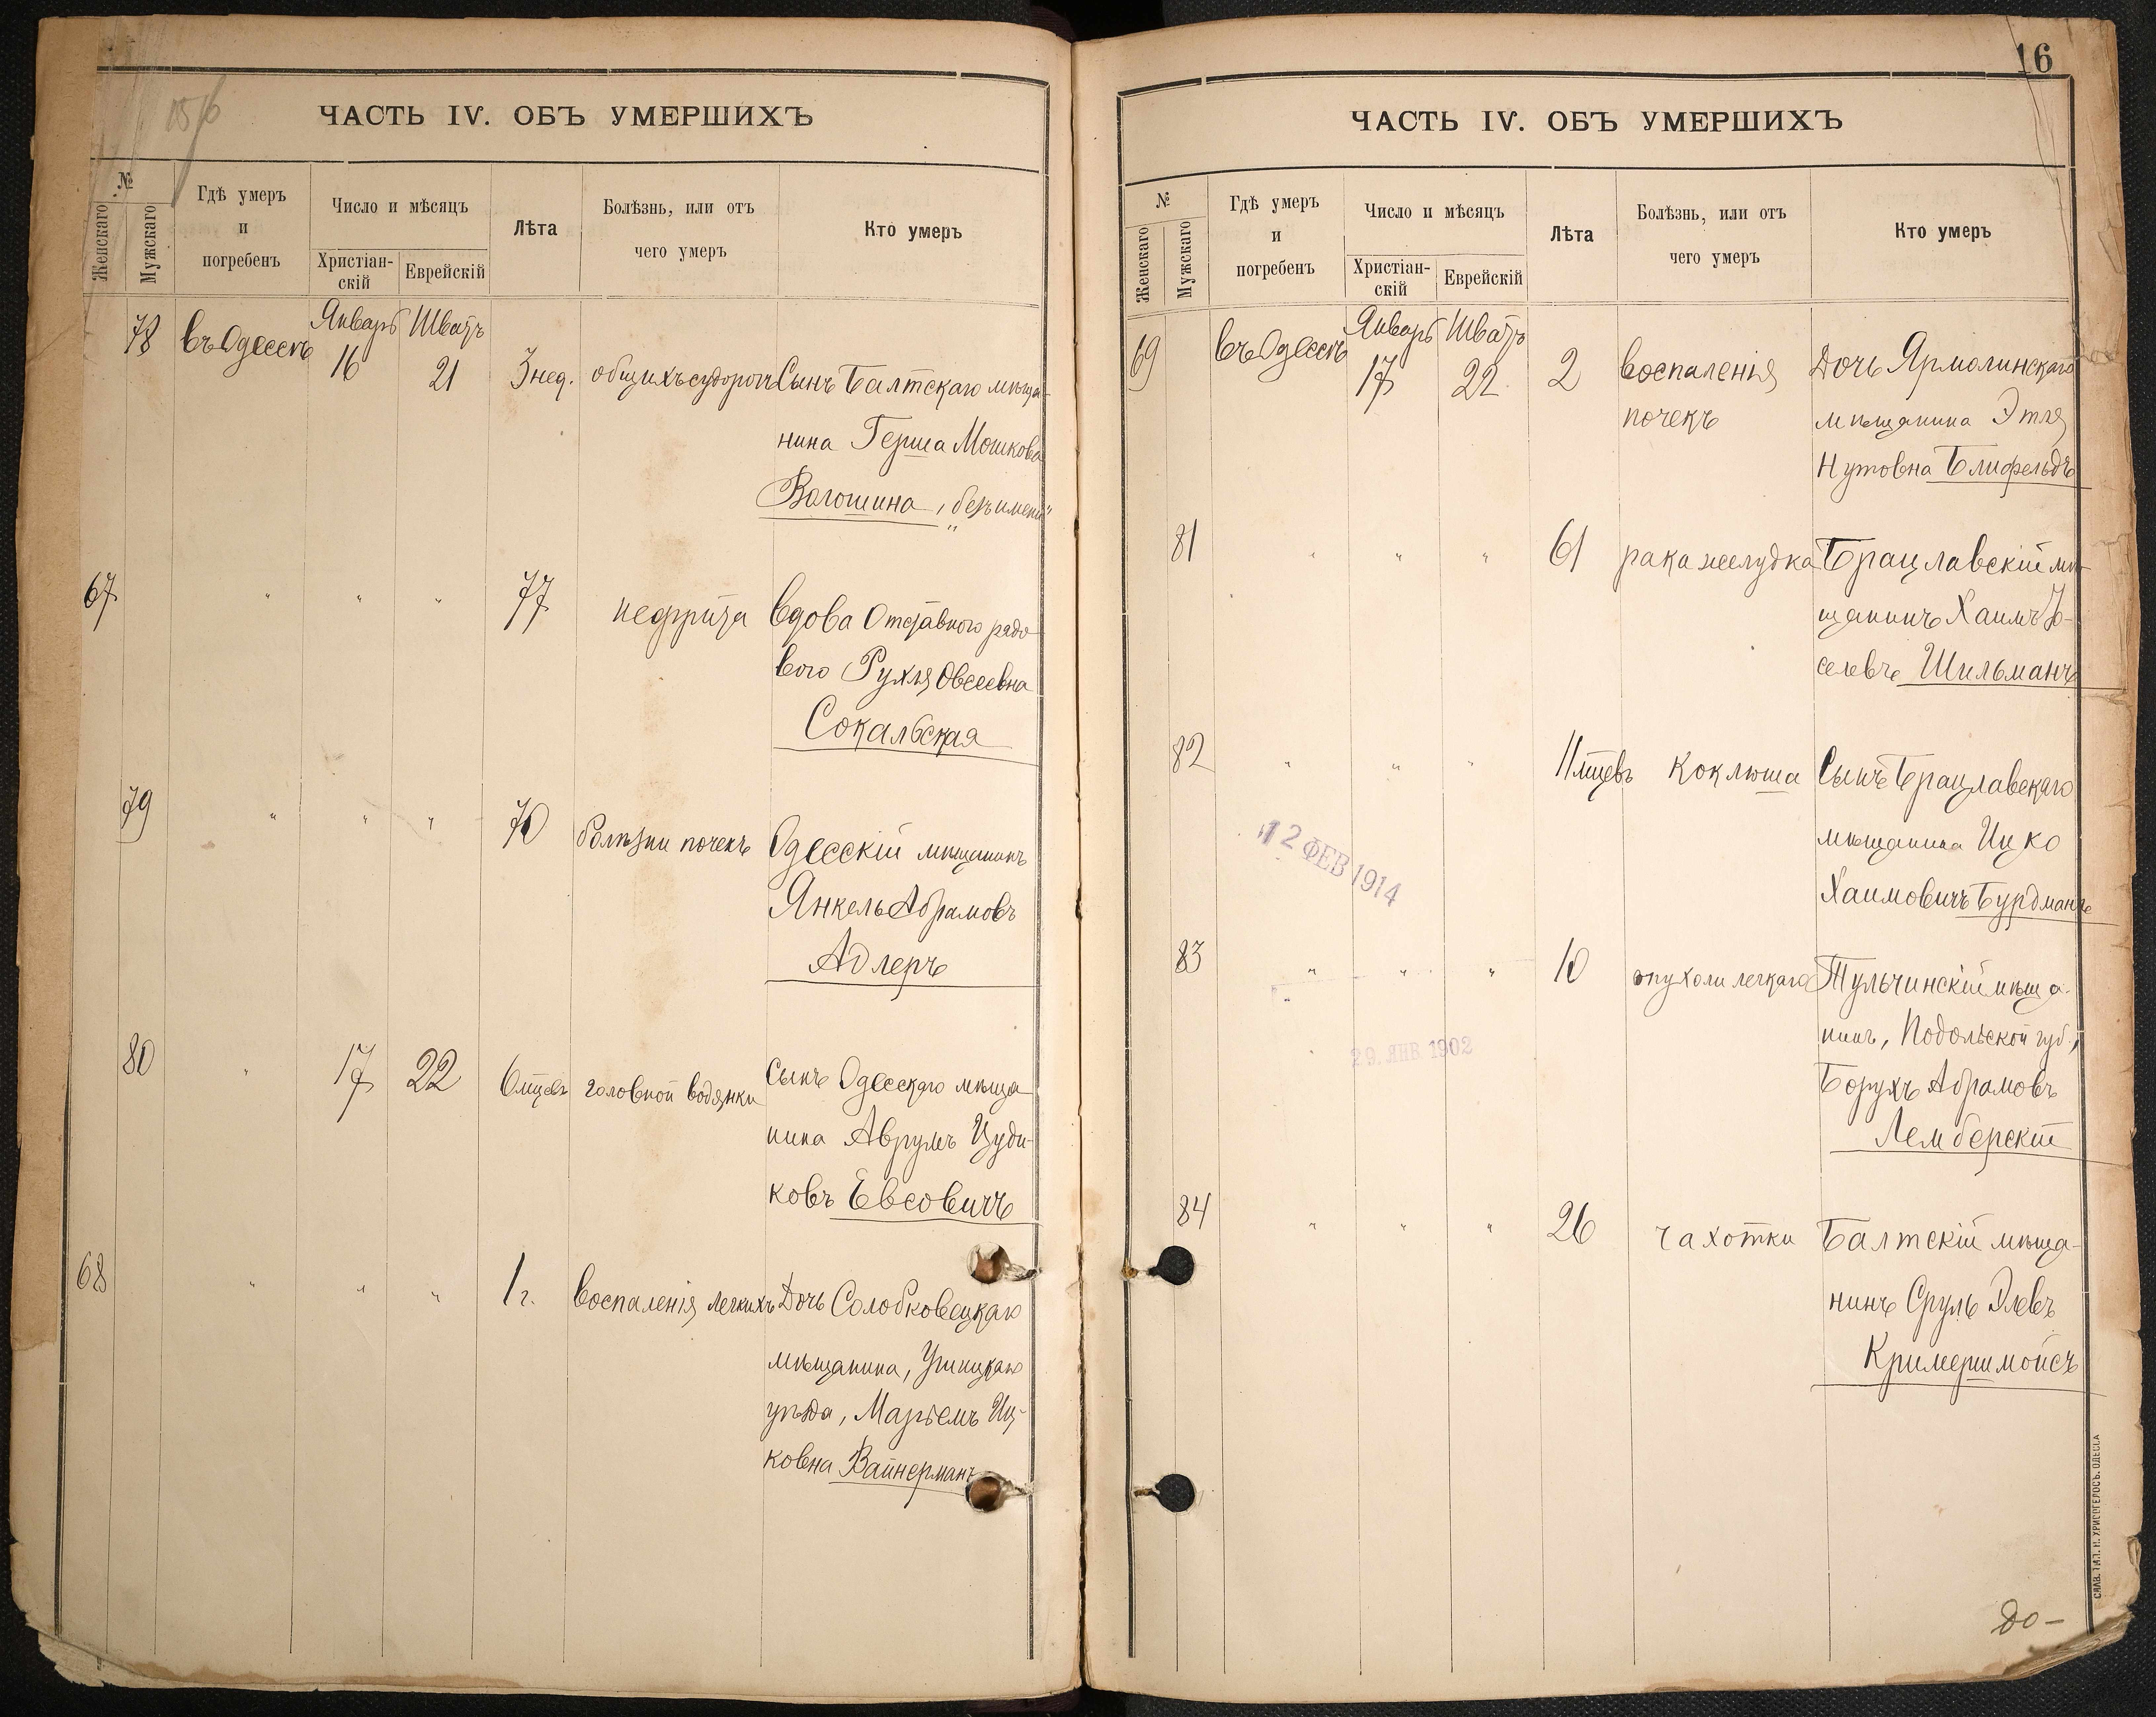 ЧАСТЬ IV. ОБЪ УМЕРШИХЪ
№
Женскаго
Мужскаго
Гдѣ умеръ
и
погребенъ
Число и мѣсяцъ
Христіан-
скій
Еврейскій
Лѣта
Болѣзнь, или отъ
чего умеръ
Кто умеръ
78 въ Одессѣ Январь 16 Шватъ 21 3 нед. общихъ судорогъ Сынъ Балтскаго мѣща-
нина Герша Мошкова
Вагошина, „безъ имени"
67 " " " 77 нефрита Вдова Отставного рядо-
вого Рухля Овсеевна
Сокальская
79 " " " 70 болѣзни почекъ Одесскій мѣщанинъ
Янкель Абрамовъ
Адлеръ
80 " 17 22 6 мцевъ головной водянки Сынъ Одесскаго мѣща-
нина Аврумъ Цуди-
ковъ Евсовичъ
68 " " " 1 г. воспаленія легкихъ Дочь Солобковецкаго
мѣщанина, Ушицкаго
уѣзда, Марьемъ Иц-
ковна Вайнерманъ
16
ЧАСТЬ IV. ОБЪ УМЕРШИХЪ
№
Женскаго
Мужскаго
Гдѣ умеръ
и
погребенъ
Число и мѣсяцъ
Христіан-
скій
Еврейскій
Лѣта
Болѣзнь, или отъ
чего умеръ
Кто умеръ
69 въ Одессѣ Январь 17 Шватъ 22 2 воспаленія Дочь Ярмолинскаго
почекъ мѣщанина Этля
Нутовна Блифельдъ
81 " " " 61 рака желудка Брацлавскій мѣ-
щанинъ Хаимъ Іо-
селевъ Шильманъ
82 " " " 11 мцевъ коклюша Сынъ Брацлавскаго
мѣщанина Ицко
Хаимовичъ Бурдманъ
12 ФЕВ 1914
83 " " " 10 опухоли легкаго Тульчинскій мѣща-
нинъ, Подольской губ.,
29. ЯНВ 1902
Борухъ Абрамовъ
Лемберскій
84 " " " 26 чахотки Балтскій мѣща-
нинъ Сруль Элевъ
Кримершмойсъ
До-